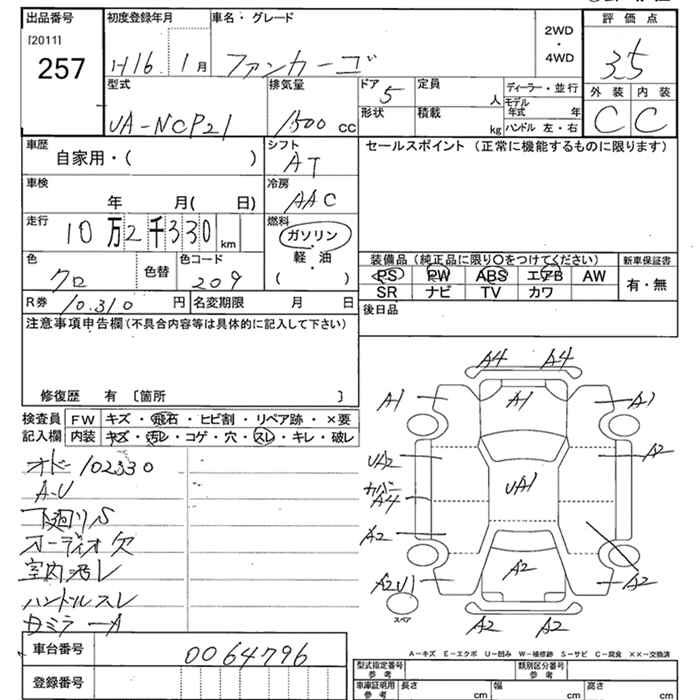 出品番号 初度登録年月 車名・グレード 2WD・4WD 評価点
[2011]
257 H16 1月 ファンカーゴ 3.5
型式 排気量 ドア 定員 ディーラー・並行 外装 内装
UA-NCP21 1500 CC 5 人 モデル年式 年 C C
形状 積載 kg ハンドル 左・右
車歴 シフト セールスポイント (正常に機能するものに限ります)
自家用・( ) AT
車検 冷房
年 月( 日) AAC
走行 燃料
10万2千330km ガソリン・軽油・( )
装備品(純正品に限り○をつけてください) 新車保証書
色 色替 色コード PS PW ABS エアB AW 有・無
クロ 209 SR ナビ TV カワ
R券 10.310 円 名変期限 月 日 後日品
注意事項申告欄(不具合内容等は具体的に記入して下さい)
修復歴 有 〔箇所 〕
検査員 FW キズ・飛石・ヒビ割・リペア跡・×要
記入欄 内装 キズ・汚レ・コゲ・穴・スレ・キレ・破レ
オドー102330
A-U
下廻りS
オーディオ欠
室内汚レ
ハンドルスレ
A4 A4
A1 A1 A1
UA2 UA1 A2
カバー
A4
A2
A2U1 A2 A2
スペア
A2 A2
A-キズ E-エクボ U-凹み W-補修跡 S-サビ C-腐食 ××-交換済
車台番号 0064796
登録番号
型式指定番号 参考 類別区分番号 参考
車庫証明用 参考 長さ cm 幅 cm 高さ cm